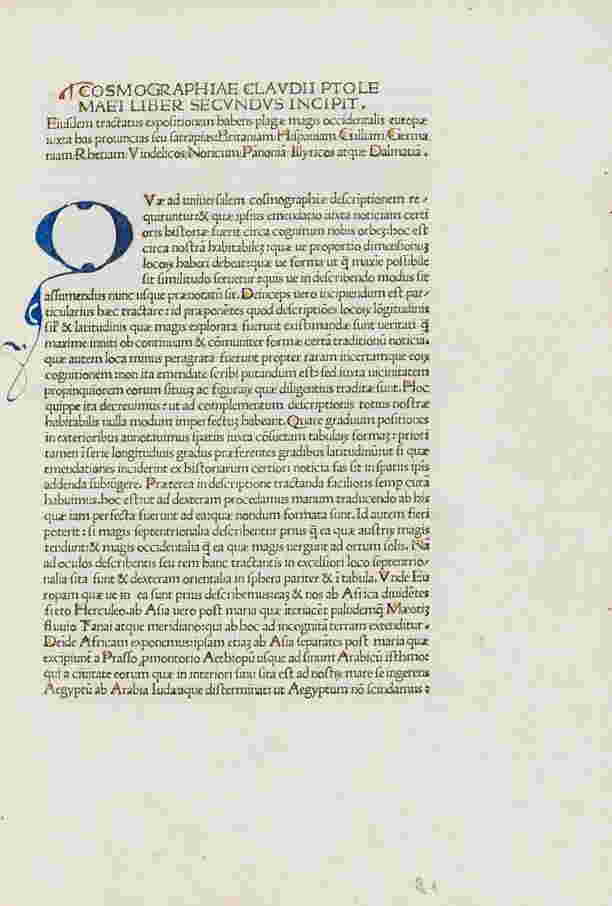 COSMOGRAPHIAE CLAVDII PTOLE
MAEI LIBER SECVNDVS INCIPIT.
Eiusdem tractatus expositionum habens plagæ magis occidentalis europæ
iuxta has prouincias seu satrapias: Britaniam: Hispaniam: Galliam: Germa
niam: Rhetiam: Vindelicos: Noricum: Panoniã: Illyricos atque Dalmatiã.
QVæ ad uniuersalem cosmographiæ descriptionem re-
quiruntur: & quæ ipsius emendatio iuxta noticiam certi
oris historiæ fuerit circa cognitum nobis orbeȝ: hoc est
circa nostrã habitabileȝ: quæ ue proportio dimensionuȝ
locoꝝ haberi debeat: quæ ue forma ut q̃ maxie possibile
sit similitudo seruetur: quis ue in describendo modus sit
assumendus nunc usque prænotatũ sit. Deinceps uero incipiendum est par-
ticularius hæc tractare: id præponẽtes quod descriptiões locoꝝ lõgitudinis
sil' & latitudinis quæ magis explorata fuerunt existimandæ sunt ueritati q̃
maxime inniti ob continuam & cõmuniter formæ certã traditionũ noticiã.
quæ autem loca minus peragrata fuerunt propter raram incertamque eoꝝ
cognitionem non ita emendate scribi putandum est: sed iuxta uicinitatem
propinquiorem eorum situuȝ ac figuraꝝ quæ diligentius traditæ sunt. Hoc
quippe ita decreuimus: ut ad complementum descriptionis totius nostræ
habitabilis nulla modum imperfectuȝ habeant. Quare graduum positiones
in exterioribus annotauimus spatiis iuxta cõsuetam tabulaꝝ formaȝ: priori
tamen i serie longitudinis gradus præferentes gradibus latitudinũ: ut si quæ
emendationes inciderint ex historiarum certiori noticia fas sit in spatiis ipis
addenda subiũgere. Præterea in descriptione tractanda facilioris semp cura
habuimus. hoc est: ut ad dexteram procedamus manum traducendo ab his
quæ iam perfecta fuerunt ad ea: quæ nondum formata sunt. Id autem fieri
poterit: si magis septentrionalia describentur prius q̃ ea quæ austrũ magis
tendunt: & magis occidentalia q̃ ea quæ magis uergunt ad ortum solis. Nã
ad oculos describentis seu rem hanc tractantis in excelsiori loco septentrio-
nalia sita sunt & dexteram orientalia in sphera pariter & i tabula. Vnde Eu
ropam quæ ue in ea sunt prius describemus: eaȝ & nos ab Africa diuidẽtes
freto Herculeo. ab Asia uero post maria quæ iteriacẽt: paludemq̃ Mæotiȝ
fluuio Tanai atque meridiano: qui ab hoc ad incognitã terram extenditur.
Deĩde Africam exponemus: ipsam etiaȝ ab Asia separãtes post maria quæ
excipiunt a Prasso promontorio Aethiopũ usque ad sinum Arabicũ isthmo:
qui a ciuitate eorum quæ in interiori sinu sita est ad nostrꝝ mare se ingerens
Aegyptũ ab Arabia Iudæaque disterminat: ut Aegyptum nõ scindamus: